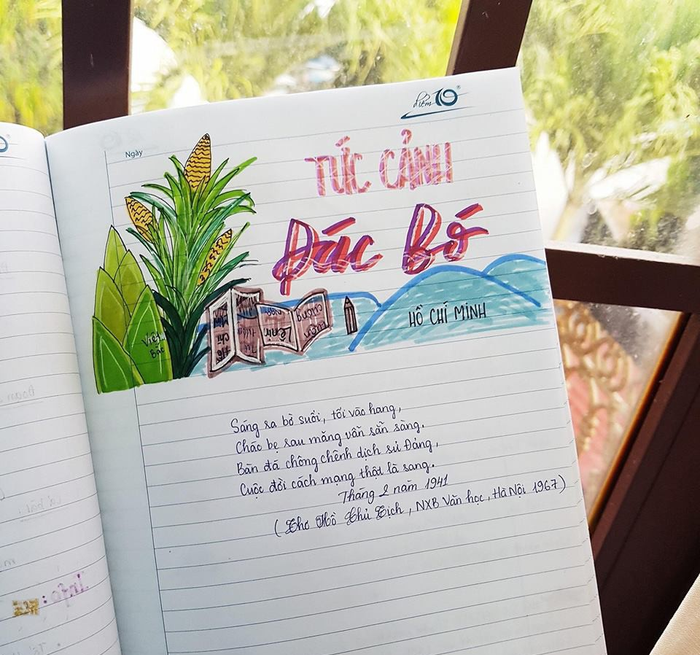 điểm 10
Ngày
TỨC CẢNH
Pác Bó
HỒ CHÍ MINH
Sáng ra bờ suối, tối vào hang,
Cháo bẹ rau măng vẫn sẵn sàng.
Bàn đá chông chênh dịch sử Đảng,
Cuộc đời cách mạng thật là sang.
Tháng 2 năm 1941
( Thơ Hồ Chủ Tịch, NXB Văn học, Hà Nội 1967)